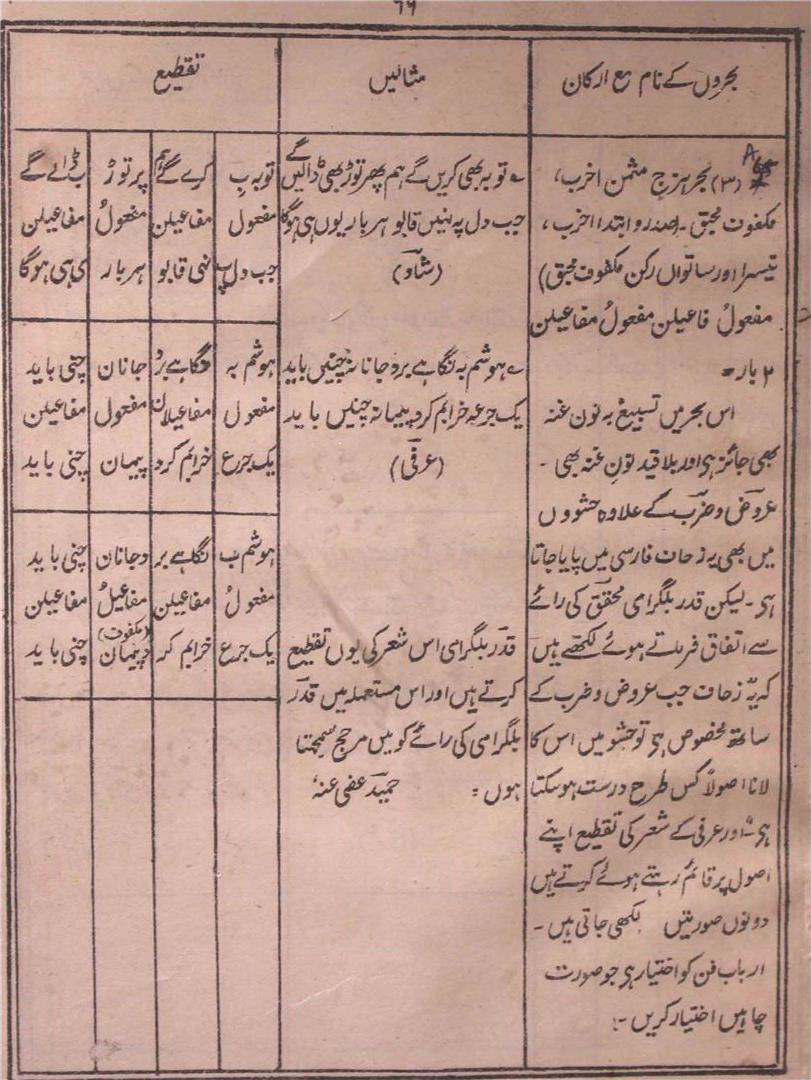 ۶۹
بحروں کے نام مع ارکان
مثالیں
تقطیع
(۳) بحر ہزج مثمن اخرب،
مکفوف محبق ۔ (صدر و ابتدا اخرب،
تیسرا اور ساتواں رکن مکفوف محبق)
مفعولُ فاعیلن مفعولُ مفاعیلن
۲ بار ۔
اس بحر میں تسبیغ بہ نون غنہ
بھی جائز ہی اور بلا قید نونِ غنہ بھی ۔
عروض و ضرب کے علاوہ حشووں
میں بھی یہ زحاف فارسی میں پایا جاتا
ہی ۔ لیکن قدر بلگرامی محقق کی رائے
سے اتفاق فرماتے ہوئے لکھتے ہیں
کہ یہ زحاف جب عروض و ضرب کے
ساتھ مخصوص ہی تو حشو میں اس کا
لانا اصولاً کس طرح درست ہو سکتا
ہی ۔ اور عرفی کے شعر کی تقطیع اپنے
اصول پر قائم رہتے ہوئے کرتے ہیں
دونوں صورتیں لکھی جاتی ہیں ۔
ارباب فن کو اختیار ہی جو صورت
چاہیں اختیار کریں ۔
توبہ بھی کریں گے ہم پھر توڑ بھی ڈالیں گے
جب دل پہ نہیں قابو ہر بار یوں ہی ہوگا
(شاد)
ہوشم بہ نگاہے برد جانانہ چنیں باید
یک جرعہ خرابم کرد پیمانہ چنیں باید
(عرفی)
قدر بلگرامی اس شعر کی یوں تقطیع
کرتے ہیں اور اس مستعملہ میں قدر
بلگرامی کی رائے کو میں مرجح سمجھتا
ہوں = حمید عفی عنہٗ
توبہ بِ کرے گے ہم پر توڑ بِ ڈالے گے
مفعول مفاعیلن مفعولُ مفاعیلن
جب دل پہ نہی قابو ہر بار ی ہی ہوگا
ہوشم بہ نگاہے برد جانان چنی باید
مفعول مفاعیلان مفعول مفاعیلن
یک جرع خرابم کرد پیمان چنی باید
ہوشم ب نگاہے بر د جانان چنی باید
مفعولُ مفاعیلن مفاعیلُ مفاعیلن
(مکفوف)
یک جرع خرابم کر د پیمان چنی باید